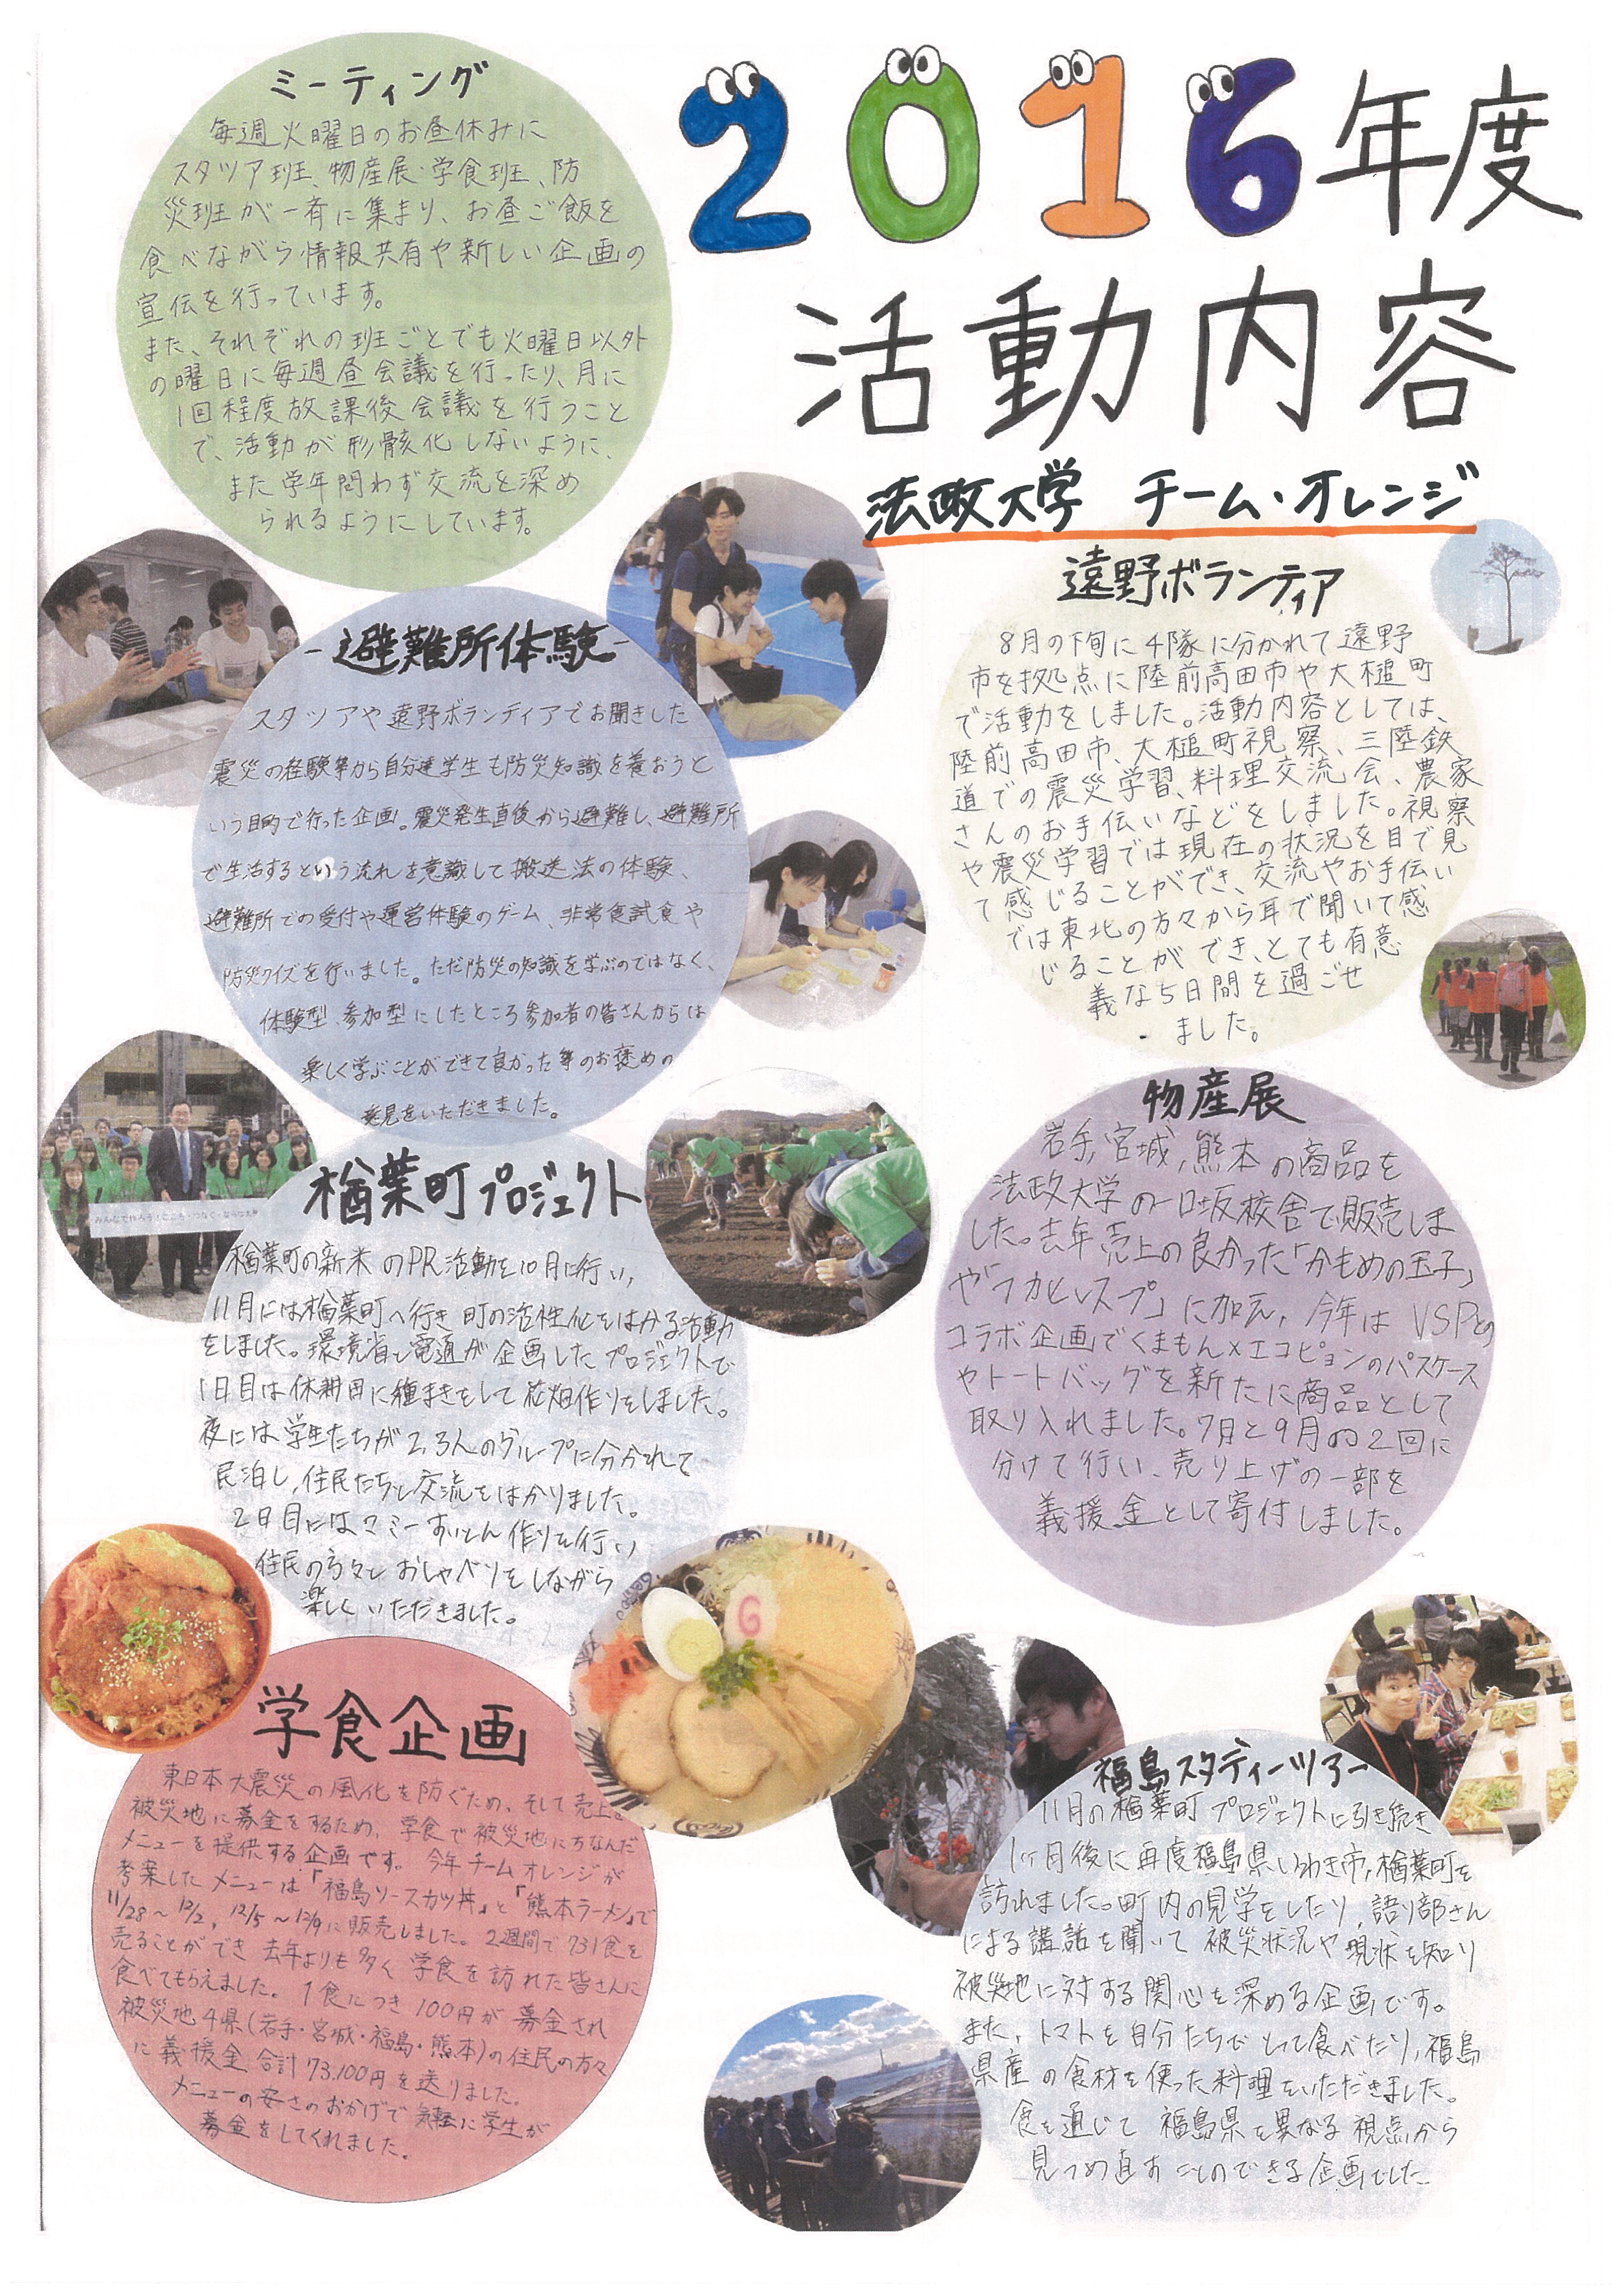 2016年度
活動内容
法政大学 チーム・オレンジ
ミーティング
毎週火曜日のお昼休みに
スタツア班、物産展・学食班、防
災班が一斉に集まり、お昼ご飯を
食べながら情報共有や新しい企画の
宣伝を行っています。
また、それぞれの班ごとでも火曜日以外
の曜日に毎週昼会議を行ったり、月に
1回程度放課後会議を行うこと
で、活動が形骸化しないように、
また学年問わず交流を深め
られるようにしています。
-避難所体験-
スタツアや遠野ボランティアでお聞きした
震災の経験等から自分達学生も防災知識を養おうと
いう目的で行った企画。震災発生直後から避難し、避難所
で生活するという流れを意識して搬送法の体験、
避難所での受付や運営体験のゲーム、非常食試食や
防災クイズを行いました。ただ防災の知識を学ぶのではなく、
体験型、参加型にしたところ参加者の皆さんからは
楽しく学ぶことができて良かった等のお褒めの
意見をいただきました。
遠野ボランティア
8月の下旬に4隊に分かれて遠野
市を拠点に陸前高田市や大槌町
で活動をしました。活動内容としては、
陸前高田市、大槌町視察、三陸鉄
道での震災学習、料理交流会、農家
さんのお手伝いなどをしました。視察
や震災学習では現在の状況を目で見
て感じることができ、交流やお手伝い
では東北の方々から耳で聞いて感
じることができ、とても有意
義な5日間を過ごせ
ました。
物産展
岩手,宮城,熊本の商品を
法政大学の一口坂校舎で販売しま
した。去年売上の良かった「かもめの玉子」
や「フカヒレスープ」に加え、今年はVSPとの
コラボ企画でくまもん×エコピョンのパスケース
やトートバッグを新たに商品として
取り入れました。7月と9月の2回に
分けて行い、売り上げの一部を
義援金として寄付しました。
楢葉町プロジェクト
楢葉町の新米のPR活動を10月に行い,
11月には楢葉町へ行き町の活性化をはかる活動
をしました。環境省と電通が企画したプロジェクトで
1日目は休耕田に種まきをして花畑作りをしました。
夜には学生たちが2,3人のグループに分かれて
民泊し,住民たちと交流をはかりました。
2日目にはマミーすいとん作りを行い
住民の方々とおしゃべりをしながら
楽しくいただきました。
学食企画
東日本大震災の風化を防ぐため、そして売上を
被災地に募金をするため、学食で被災地にちなんだ
メニューを提供する企画です。今年チームオレンジが
考案したメニューは「福島ソースカツ丼」と「熊本ラーメン」で
11/28～12/2, 12/5～12/9に販売しました。2週間で731食を
売ることができ去年よりも多く学食を訪れた皆さんに
食べてもらえました。1食につき100円が募金され
被災地4県(岩手・宮城・福島・熊本)の住民の方々
に義援金合計73,100円を送りました。
メニューの安さのおかげで気軽に学生が
募金をしてくれました。
福島スタディーツアー
11月の楢葉町プロジェクトに引き続き
1ヶ月後に再度福島県いわき市,楢葉町を
訪れました。町内の見学をしたり,語り部さん
による講話を聞いて被災状況や現状を知り
被災地に対する関心を深める企画です。
また,トマトを自分たちでとって食べたり,福島
県産の食材を使った料理をいただきました。
食を通じて福島県を異なる視点から
見つめ直すことのできる企画でした